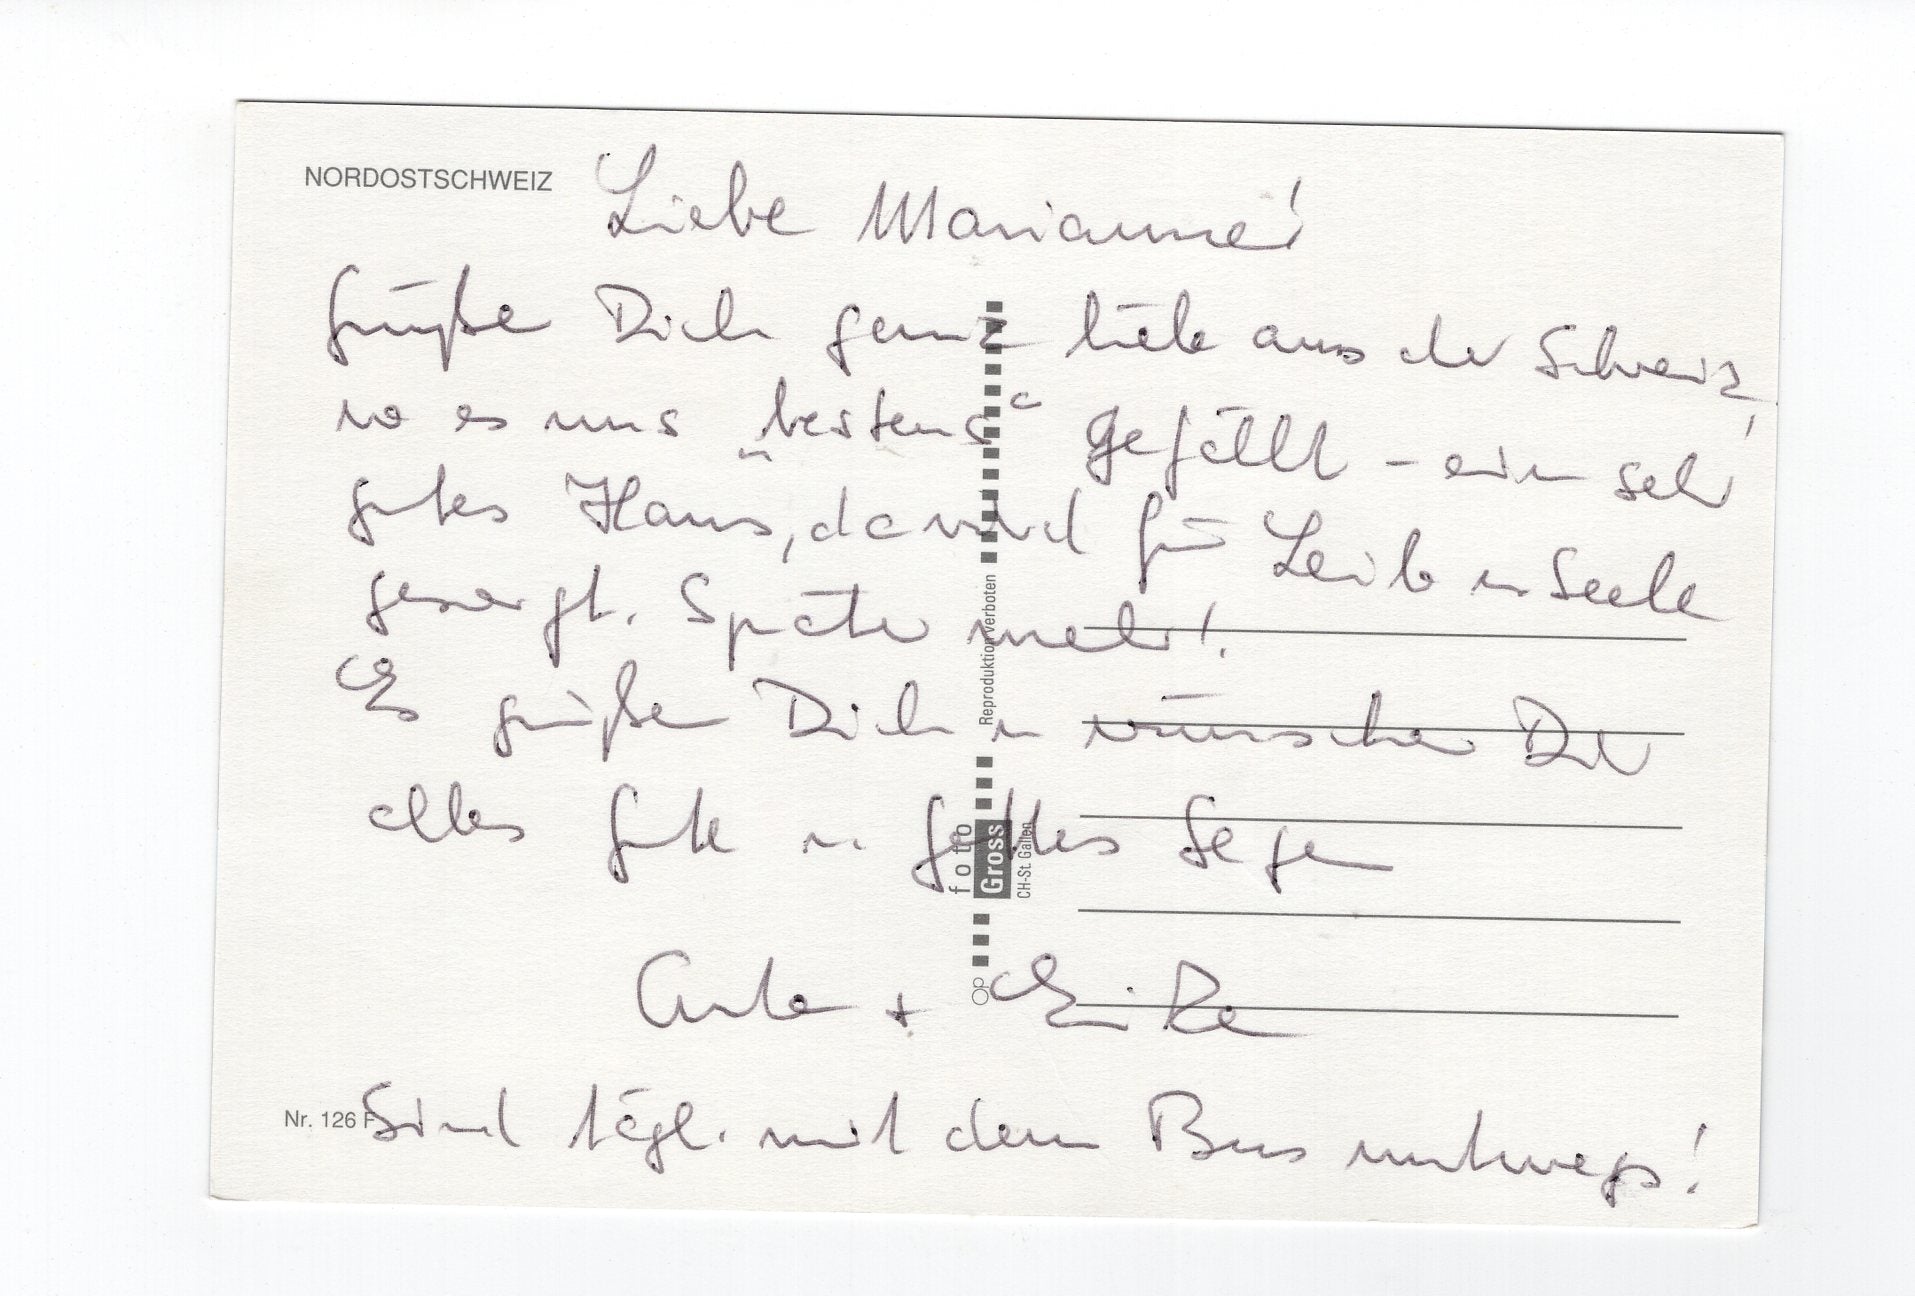 NORDOSTSCHWEIZ
Liebe Marianne!
Grüße Dich ganz liebe aus der Schweiz,
wo es uns „bestens“ gefällt – ein sehr
gutes Haus, da wird für Leib u Seele
gesorgt. Später mehr!
Es grüßen Dich u wünschen Dir
alles Gute u. Gottes Segen
+ Eike
Sind tägl. mit dem Bus unterwegs!
Nr. 126 F
Reproduktion verboten
foto
Gross
CH-St. Gallen